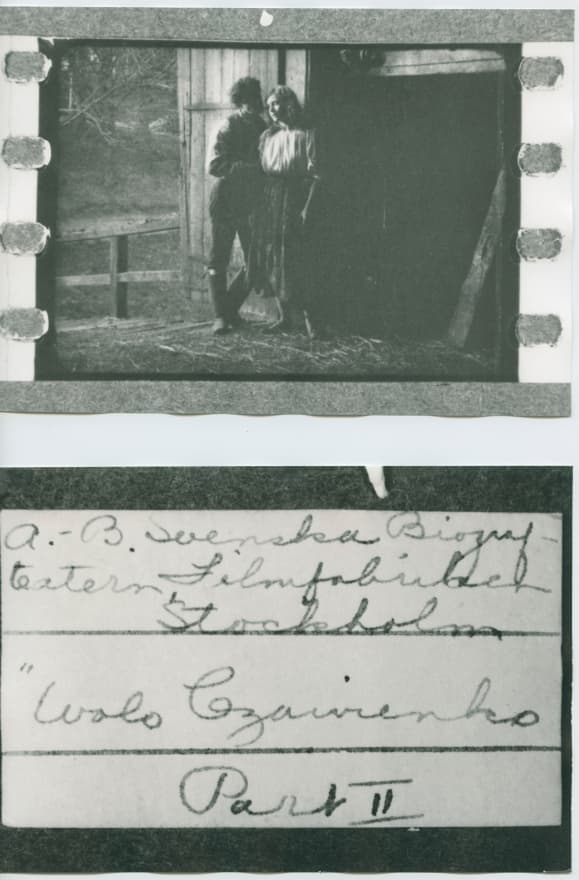 A.-B. Svenska Biograf-
teatern, Filmfabriken
Stockholm
"Wolo Czawienko
Part II